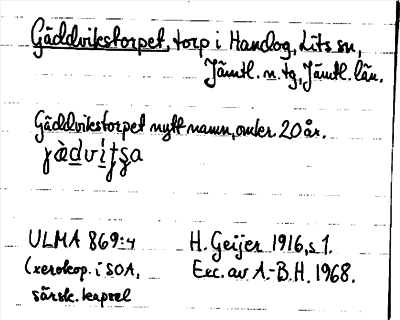 Gäddvikstorpet, torp i Handog, Lits sn,
Jämtl. n. tg, Jämtl. län.
Gäddvikstorpet nytt namn, omkr. 20 år.
ULMA 869:4
(xerokop. i SOA,
särsk. kapsel
H. Geijer 1916, s 1.
Exc. av A.-B. H. 1968.